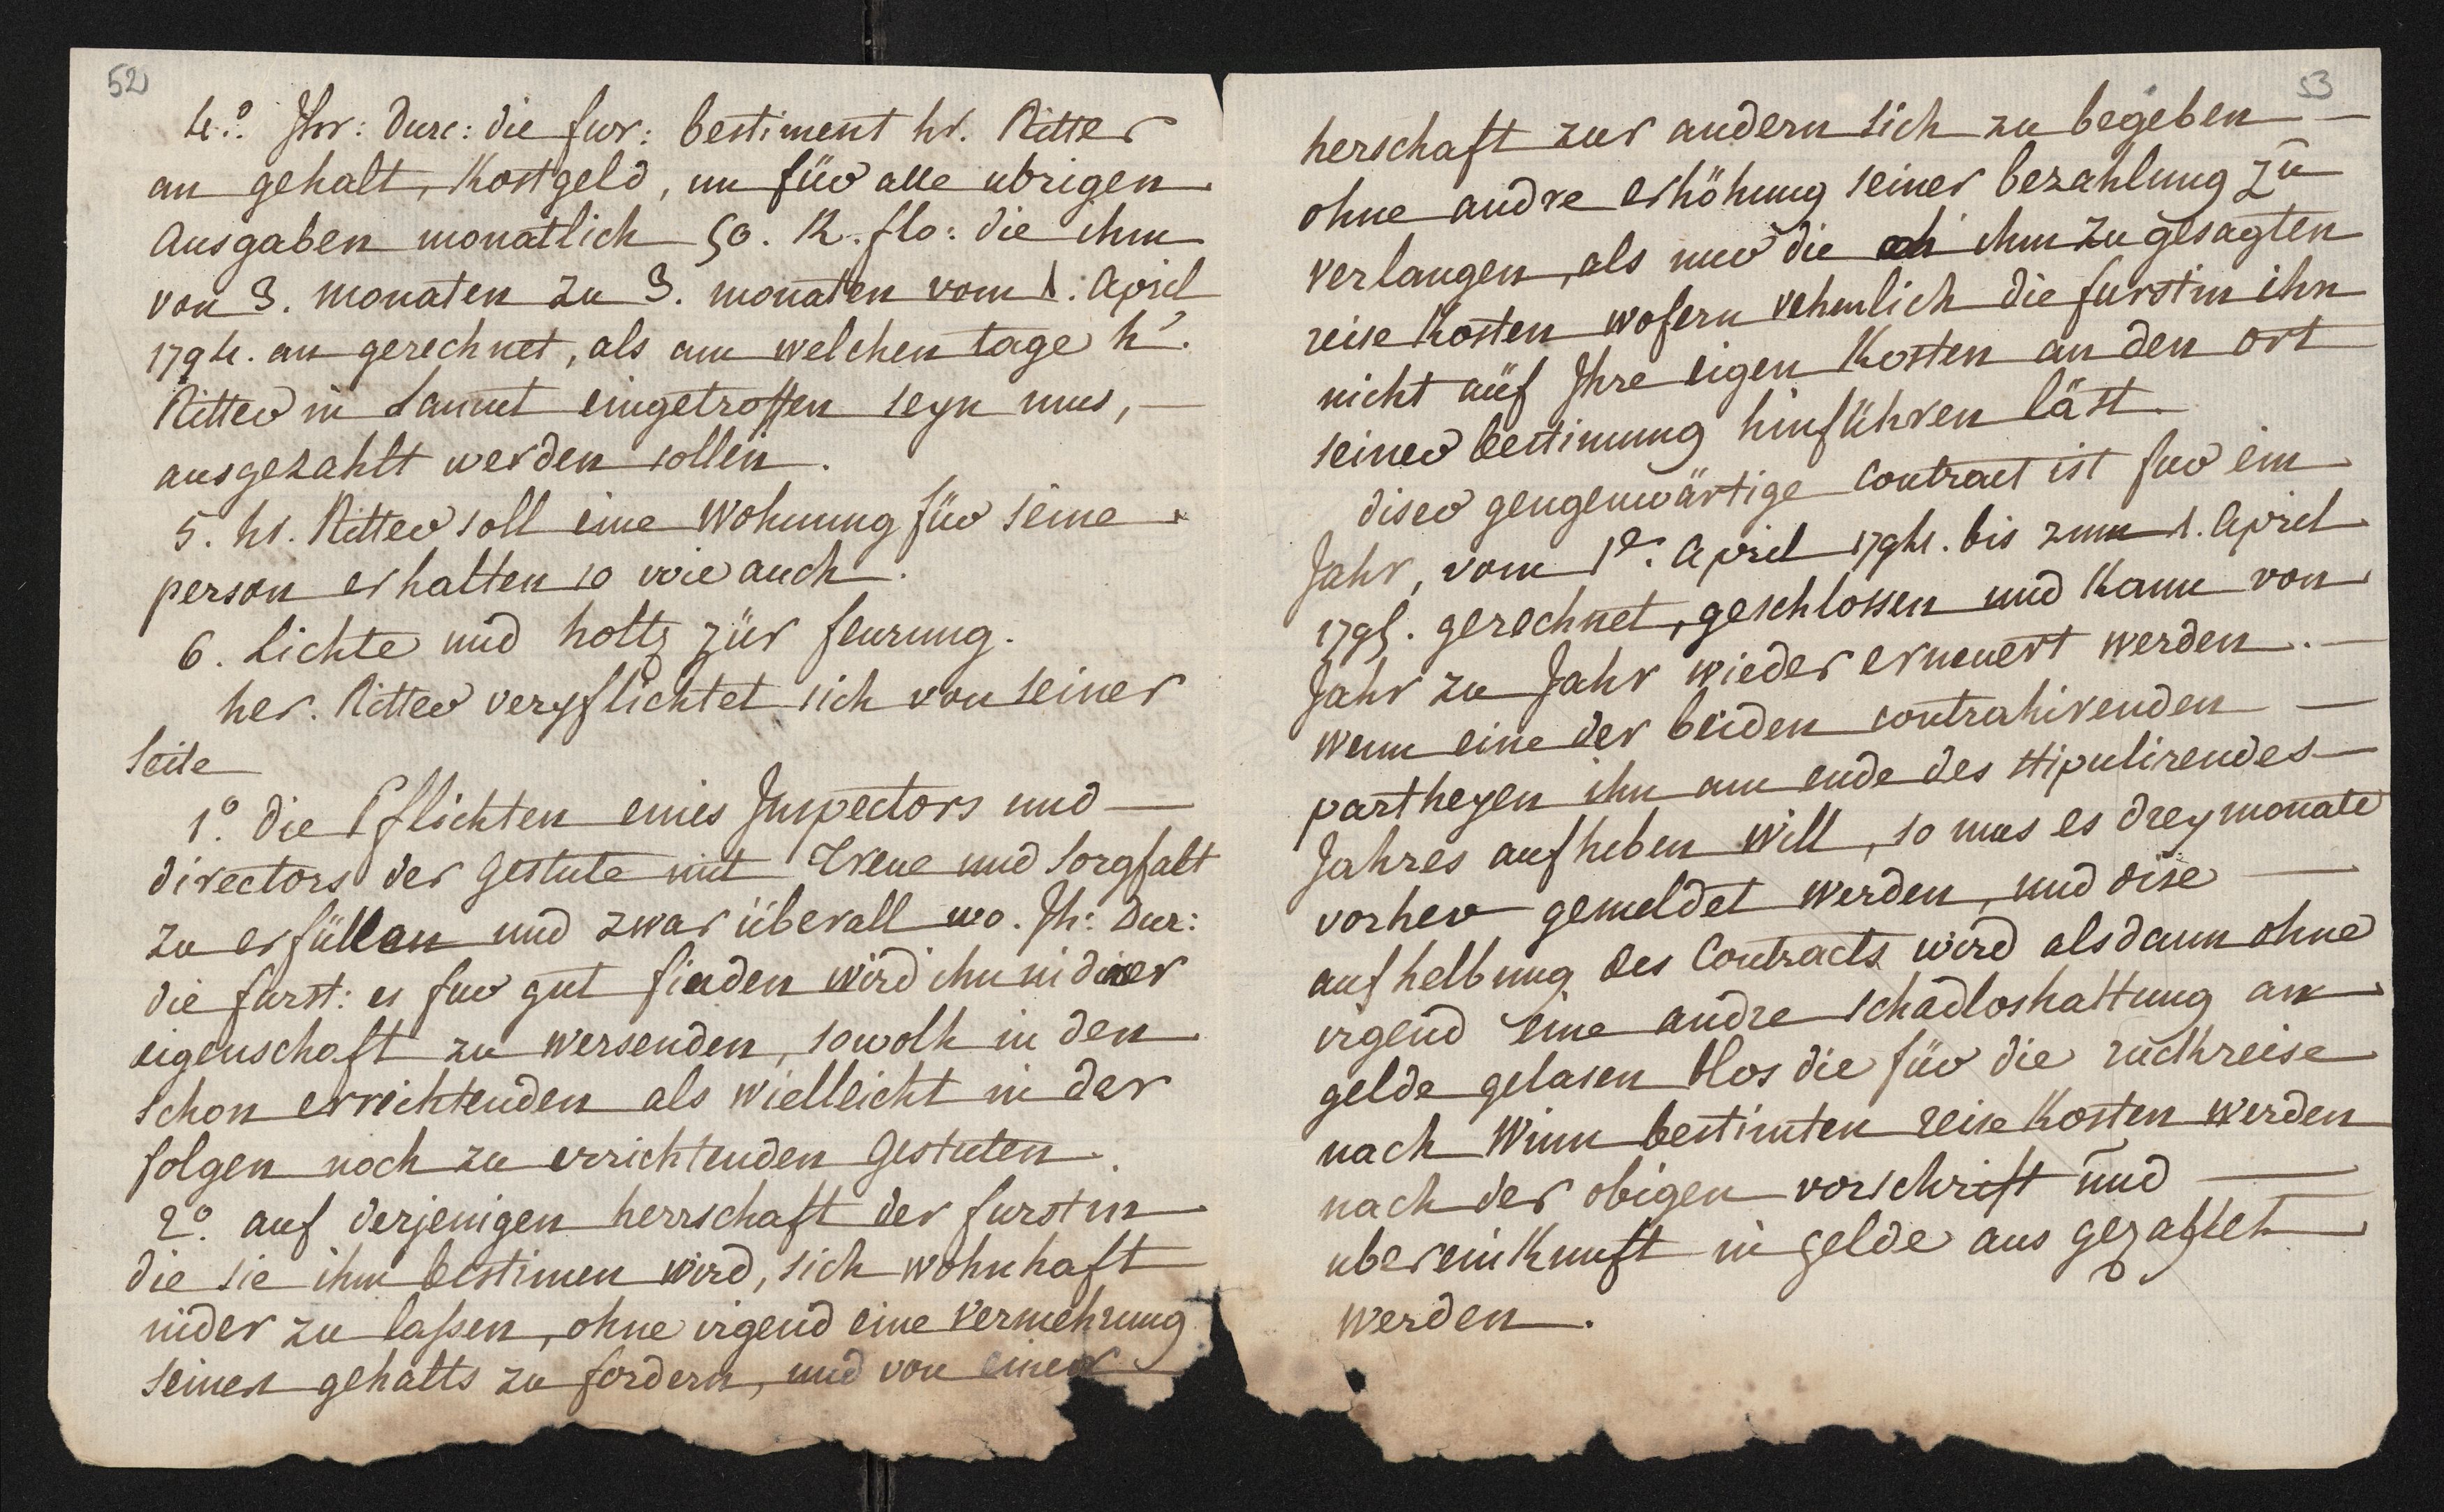 52
4.° Ihr: Durc: die fur: bestiment hr. Ritter
an gehalt, Kostgeld, un für alle ubrigen
Ausgaben monatlich 50. R. flo: die ihm
von 3. monaten zu 3. monaten vom 1. April
1794. an gerechnet, als am welchen tage hr.
Ritter in Lannet eingetroffen seyn mus, —
ausgezahlt werden sollen.
5. hr. Ritter soll eine Wohnung für seine
person erhalten so wie auch.
6. Lichte und holtz zür feurung.
her. Ritter verpflichtet sich von seiner
Seite
1° die Pflichten eines Inspectors und —
directors der Gestute mit Treue und Sorgfalt
zu erfüllen und zwar überall wo. Ih: Dur:
die furst: es fur gut finden wird ihn in diser
eigenschaft zu wersenden, sowolh in den
schon errichtenden als wielleicht in der
folgen noch zu errichtenden Gestuten.
2° auf derjenigen herrschaft der furstin
die sie ihm bestimen wird, sich wohnhaft
nider zu laßen, ohne irgend eine vermehrung
seines gehalts zu fordern, und von einer
53
herschaft zur andern sich zu begeben —
ohne andre erhöhung seiner bezahlung zu
verlangen, als nur die ihm zu gesagten
reise Kosten wofern nehmlich die furstin ihn
nicht auf Ihre eigen Kosten an den ort
seiner bestimung hinführen läst.
diser gengenwärtige Contract ist fur ein
Jahr, vom 1e. April 1794. bis zum 1. April
1795. gerechnet, geschlossen und Kann von
Jahr zu Jahr wieder erneuert werden. —
wenn eine der beiden contrahirenden —
partheyen ihn am ende des stipulirendes
Jahres aufheben will, so mus es drey monate
vorher gemeldet werden, und dise —
aufhelbung des Contracts wird alsdann ohne
irgend eine andre schadloshaltung an
gelde gelasen blos die für die rückreise
nach Winn bestimten reise Kosten werden
nach der obigen vorschrift und —
ubereinkunft in gelde aus gezahlet
werden.